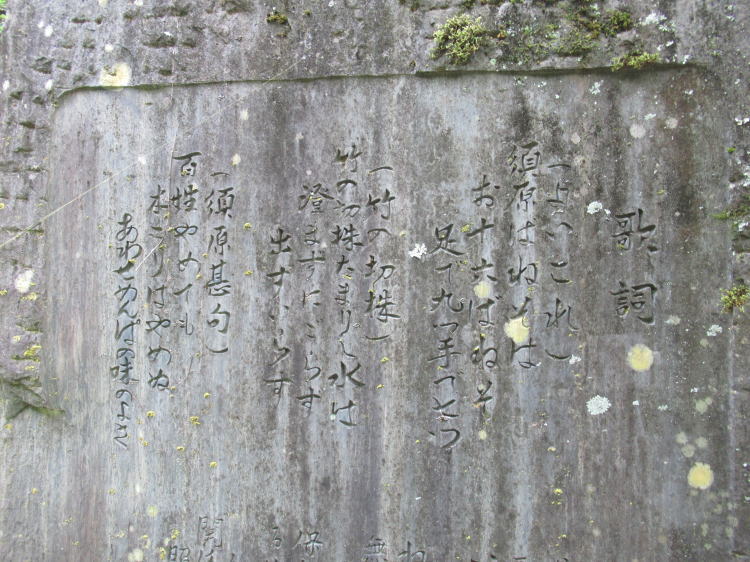 歌詞
(よいこれ)
須原ばねそは
お十六ばねそ
足で九つ手で七つ
(竹の切株)
竹の切株たまりし水は
澄まずにごらす
出すいらす
(須原甚句)
百姓やめても
木こりはやめぬ
あわせめんぱの味のよさ